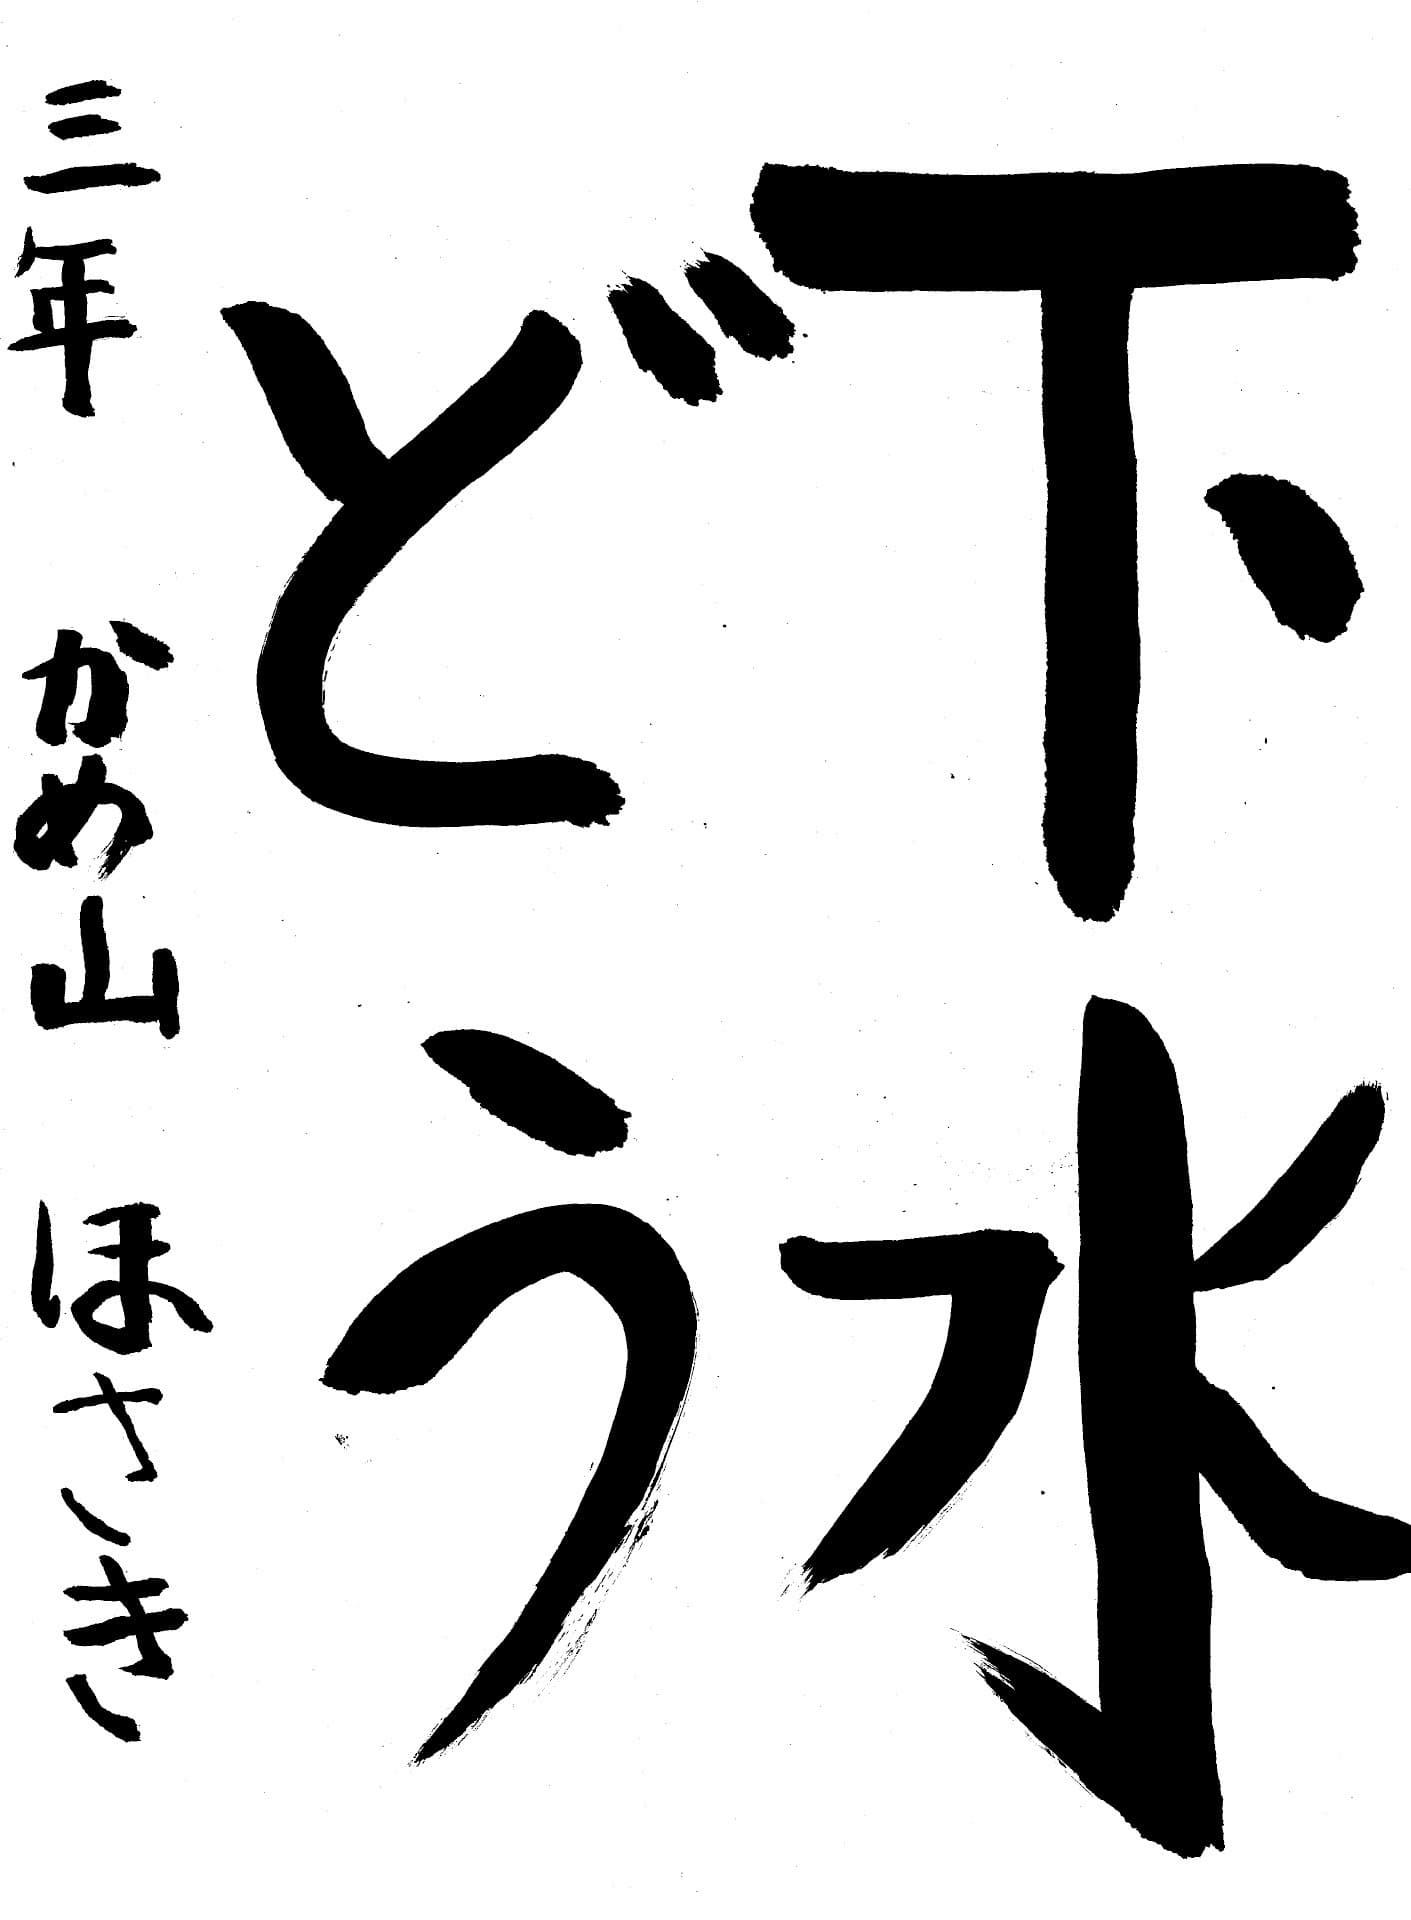 下水
どう
三年 かめ山 ほさき